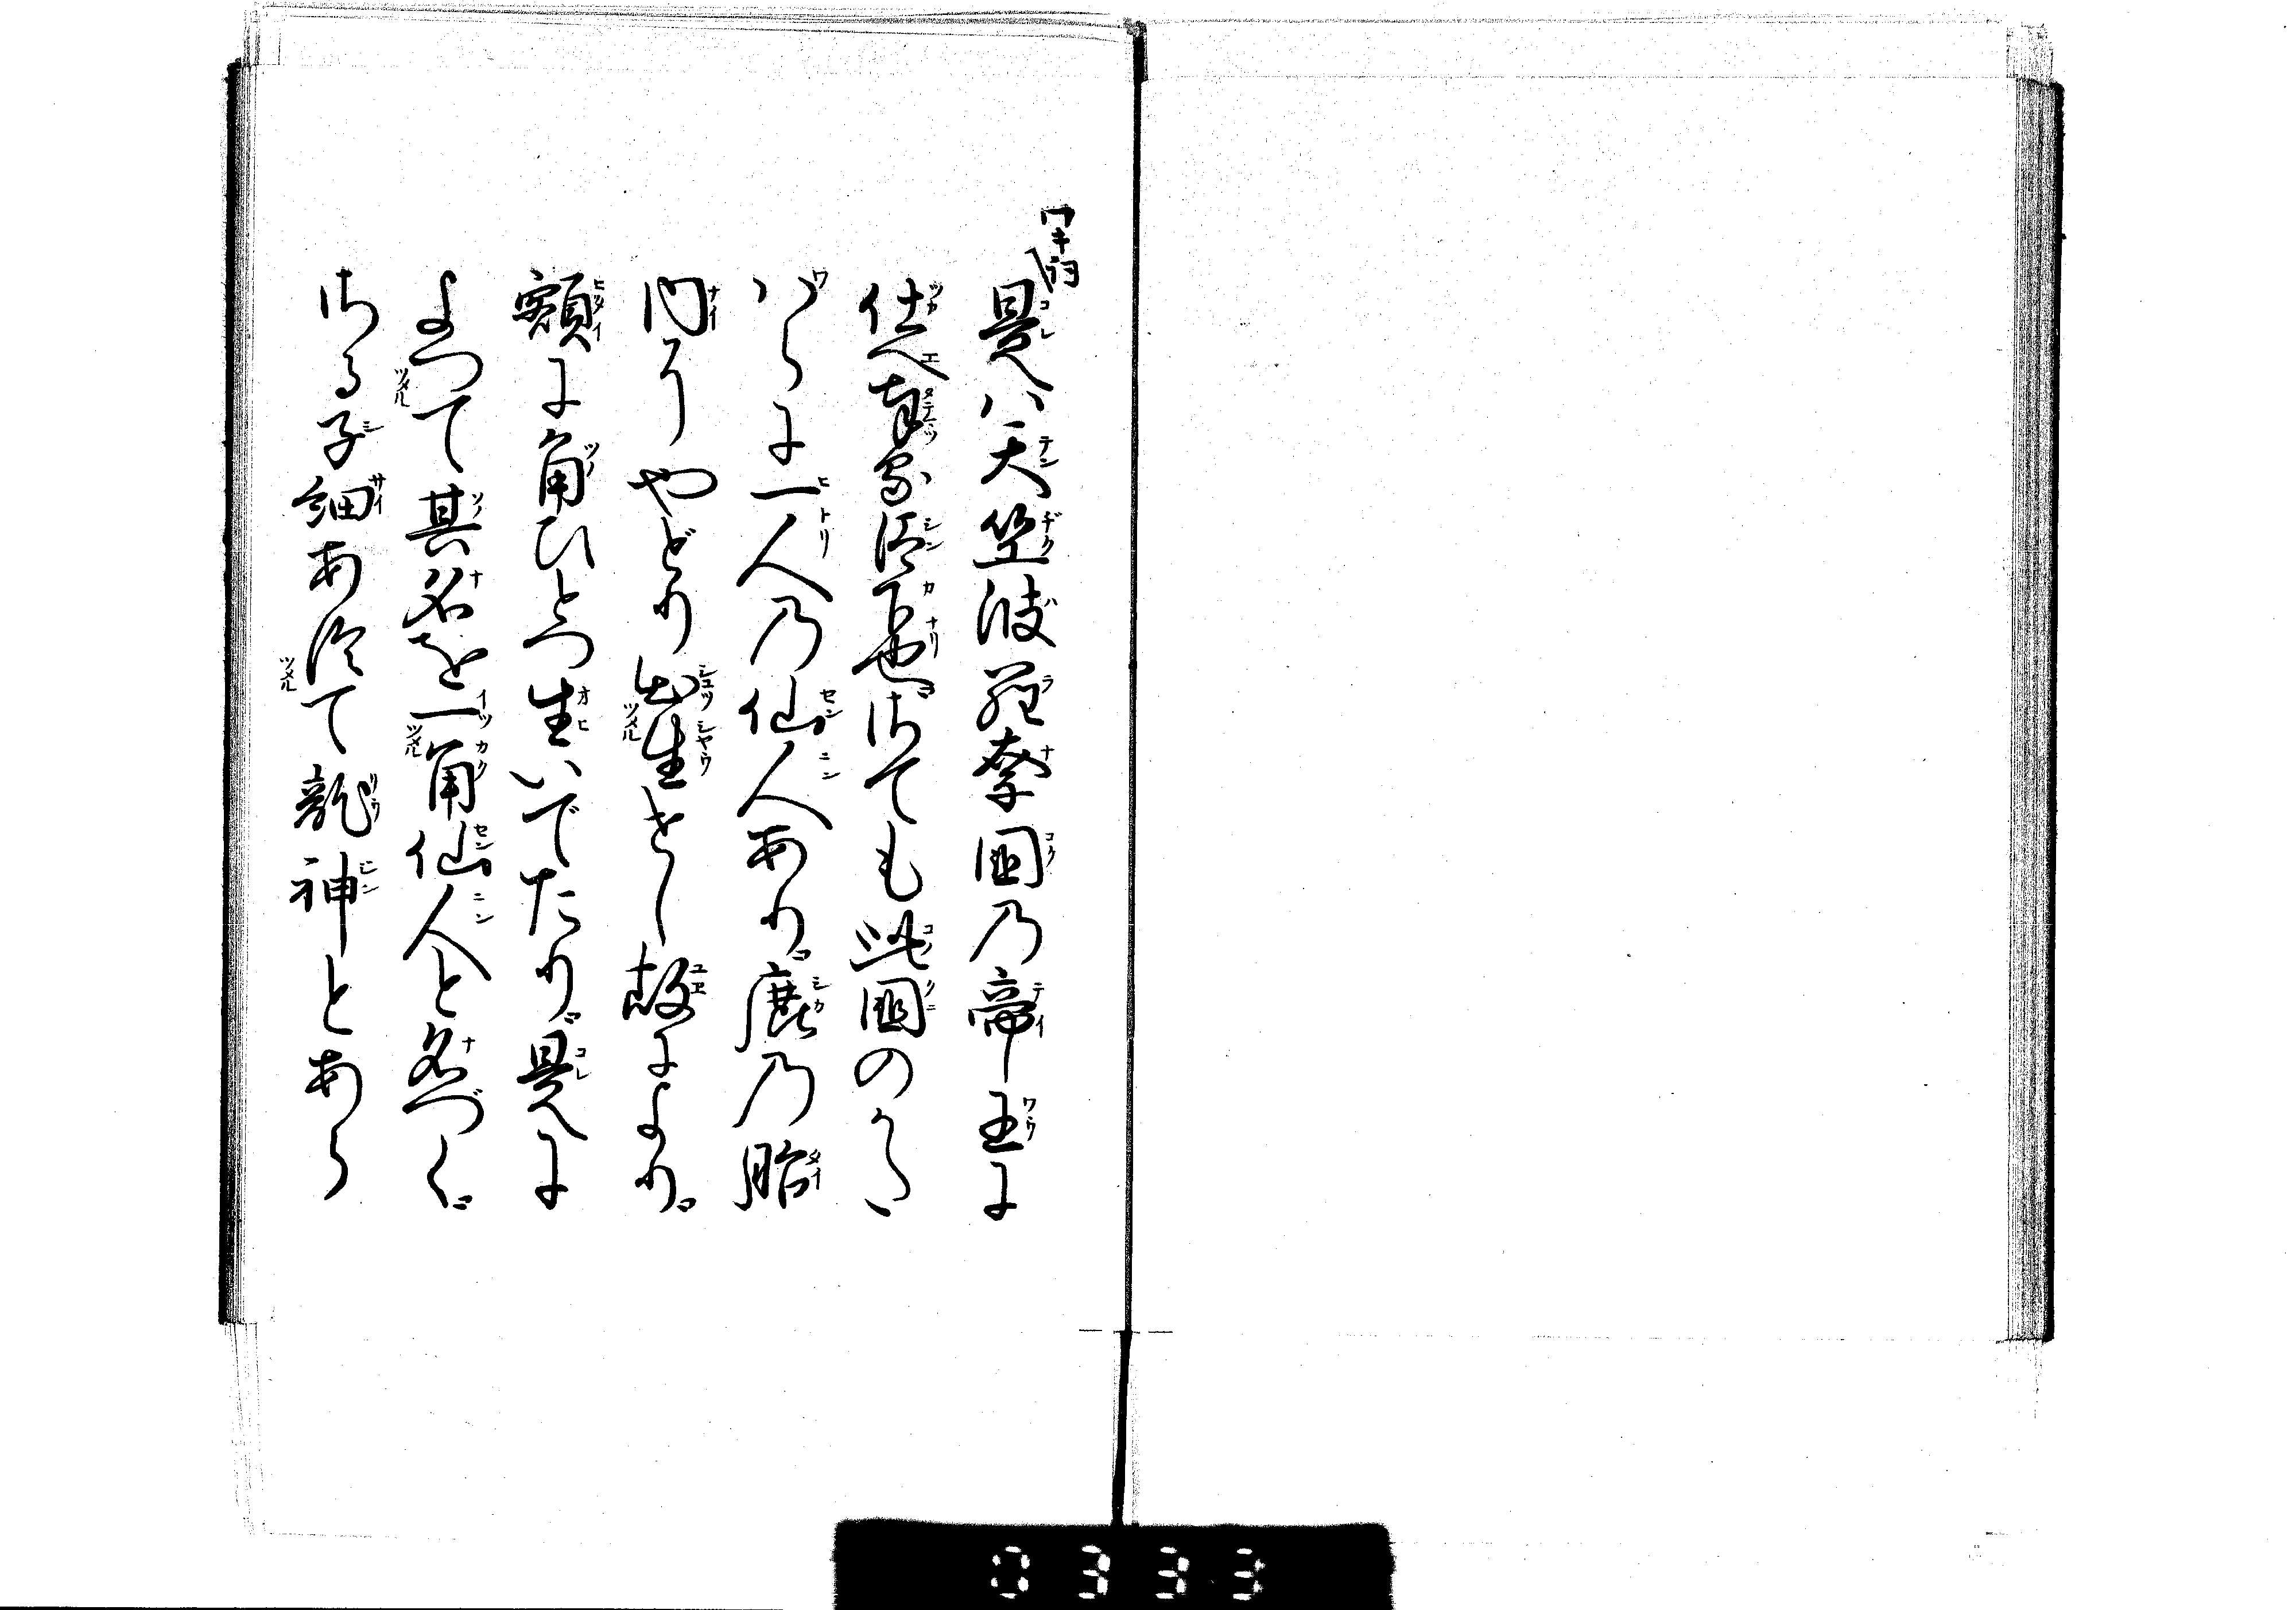 ワキ詞
是ハ天竺波羅奈国乃帝王に
仕へ奉る臣下也さても此国のかた
ハらに一人乃仙人あり鹿乃胎
内にやどり出生せし故により
額に角ひとつ生いでたり是に
よつて其名を一角仙人と名づく
さる子細あつて龍神とあら
0333